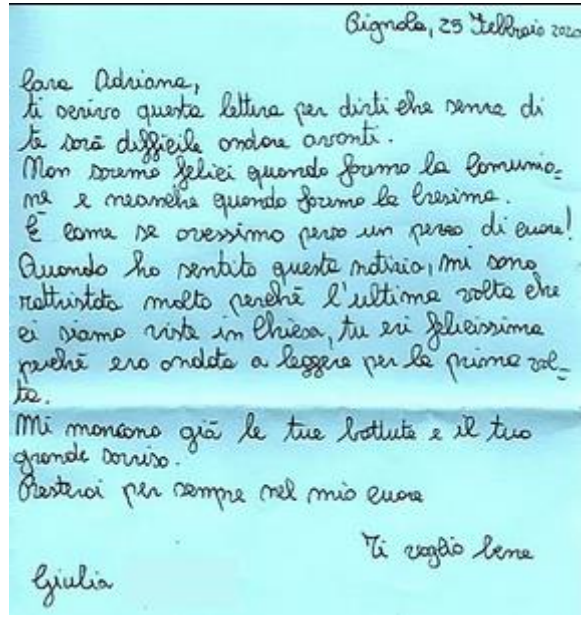 Pignola, 25 Febbraio 2020
Cara Adriana,
ti scrivo questa lettera per dirti che senza di
te sarà difficile andare avanti.
Non saremo felici quando faremo la Comunio=
ne e neanche quando faremo la Cresima.
È come se avessimo perso un pezzo di cuore!
Quando ho sentito questa notizia, mi sono
rattristata molto perchè l'ultima volta che
ci siamo viste in Chiesa, tu eri felicissima
perchè ero andata a leggere per la prima vol=
ta.
Mi mancano già le tue battute e il tuo
grande sorriso.
Resterai per sempre nel mio cuore
Ti voglio bene
Giulia